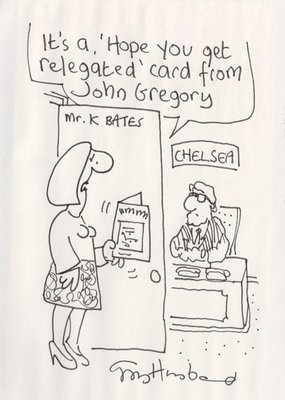 It's a, 'Hope you get
relegated' card from
John Gregory
Mr. K BATES
CHELSEA
Tony Husband